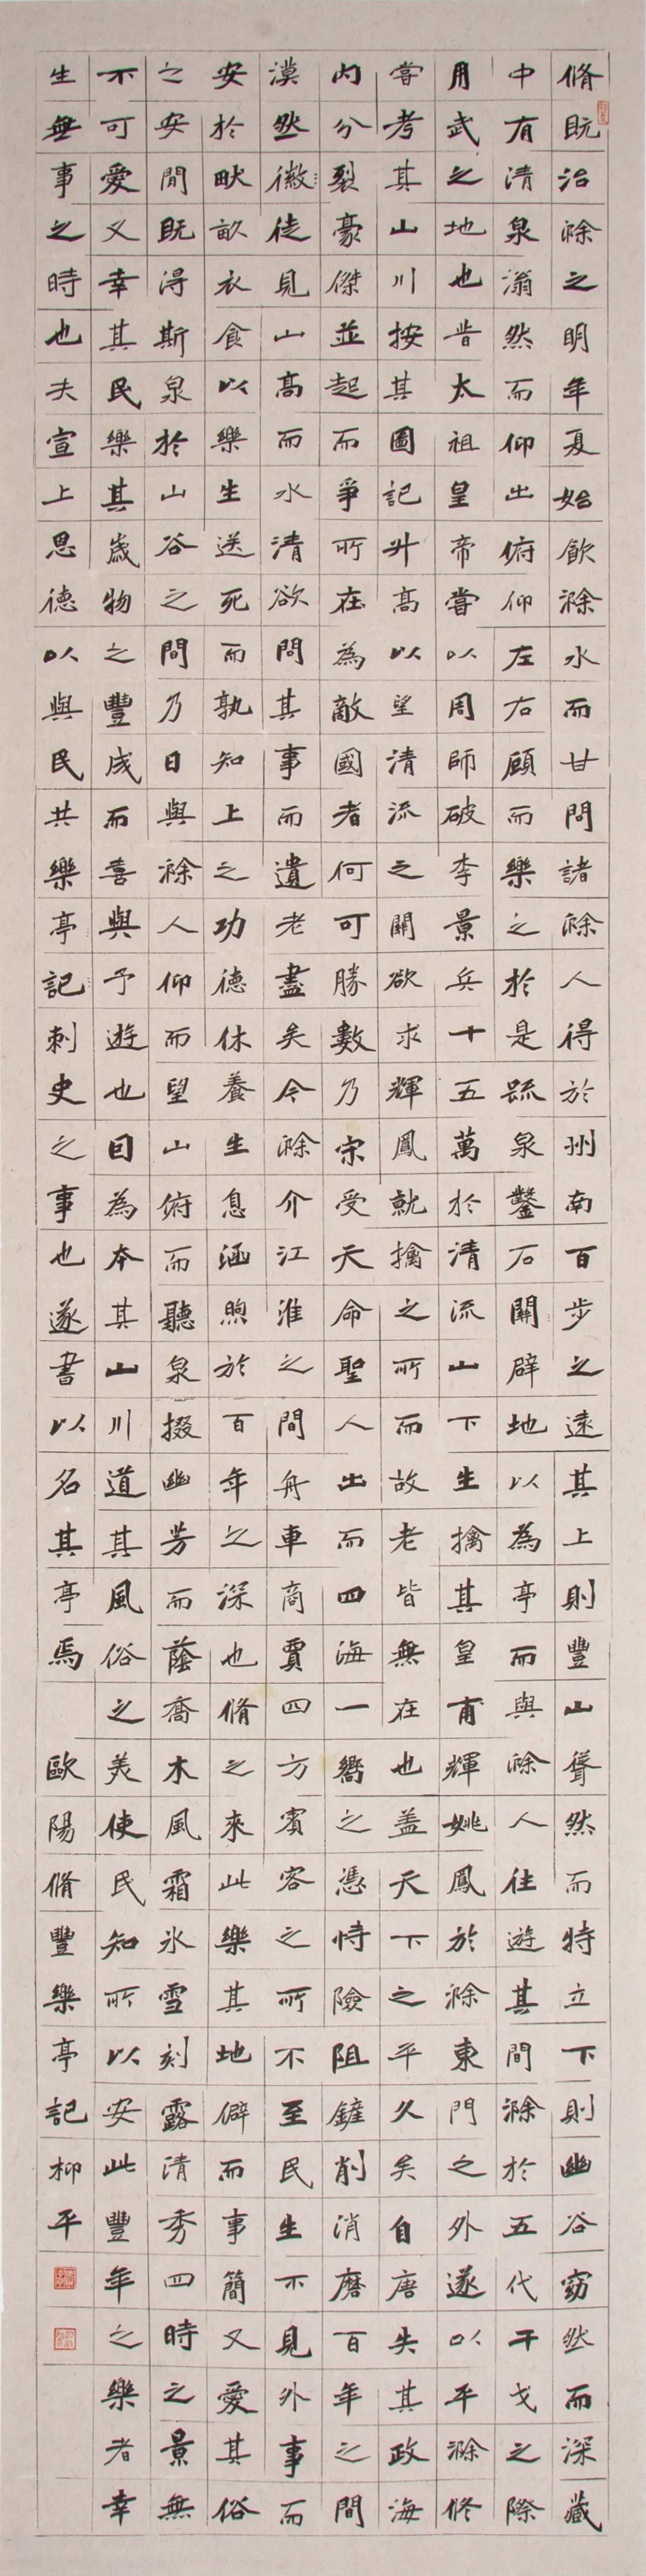 脩既治滁之明年夏始飲滁水而甘問諸滁人得於州南百步之遠其上則豐山聳然而特立下則幽谷窈然而深藏
中有清泉滃然而仰出俯仰左右顧而樂之於是疏泉鑿石關辟地以為亭而與滁人往遊其間滁於五代干戈之際
用武之地也昔太祖皇帝嘗以周師破李景兵十五萬於清流山下生擒其皇甫輝姚鳳於滁東門之外遂以平滁修
嘗考其山川按其圖記升高以望清流之關欲求輝鳳就擒之所而故老皆無在也蓋天下之平久矣自唐失其政海
內分裂豪傑並起而爭所在為敵國者何可勝數乃宋受天命聖人出而四海一嚮之憑恃險阻鏟削消磨百年之間
漠然徽徒見山高而水清欲問其事而遺老盡矣今滁介江淮之間舟車商賈四方賓客之所不至民生不見外事而
安於畎畝衣食以樂生送死而孰知上之功德休養生息涵煦於百年之深也脩之來此樂其地僻而事簡又愛其俗
之安間既得斯泉於山谷之間乃日與滁人仰而望山俯而聽泉掇幽芳而蔭喬木風霜冰雪刻露清秀四時之景無
不可愛又幸其民樂其歲物之豐成而喜與予遊也因為本其山川道其風俗之美使民知所以安此豐年之樂者幸
生無事之時也夫宣上恩德以與民共樂亭記刺史之事也遂書以名其亭焉 歐陽脩豐樂亭記柳平